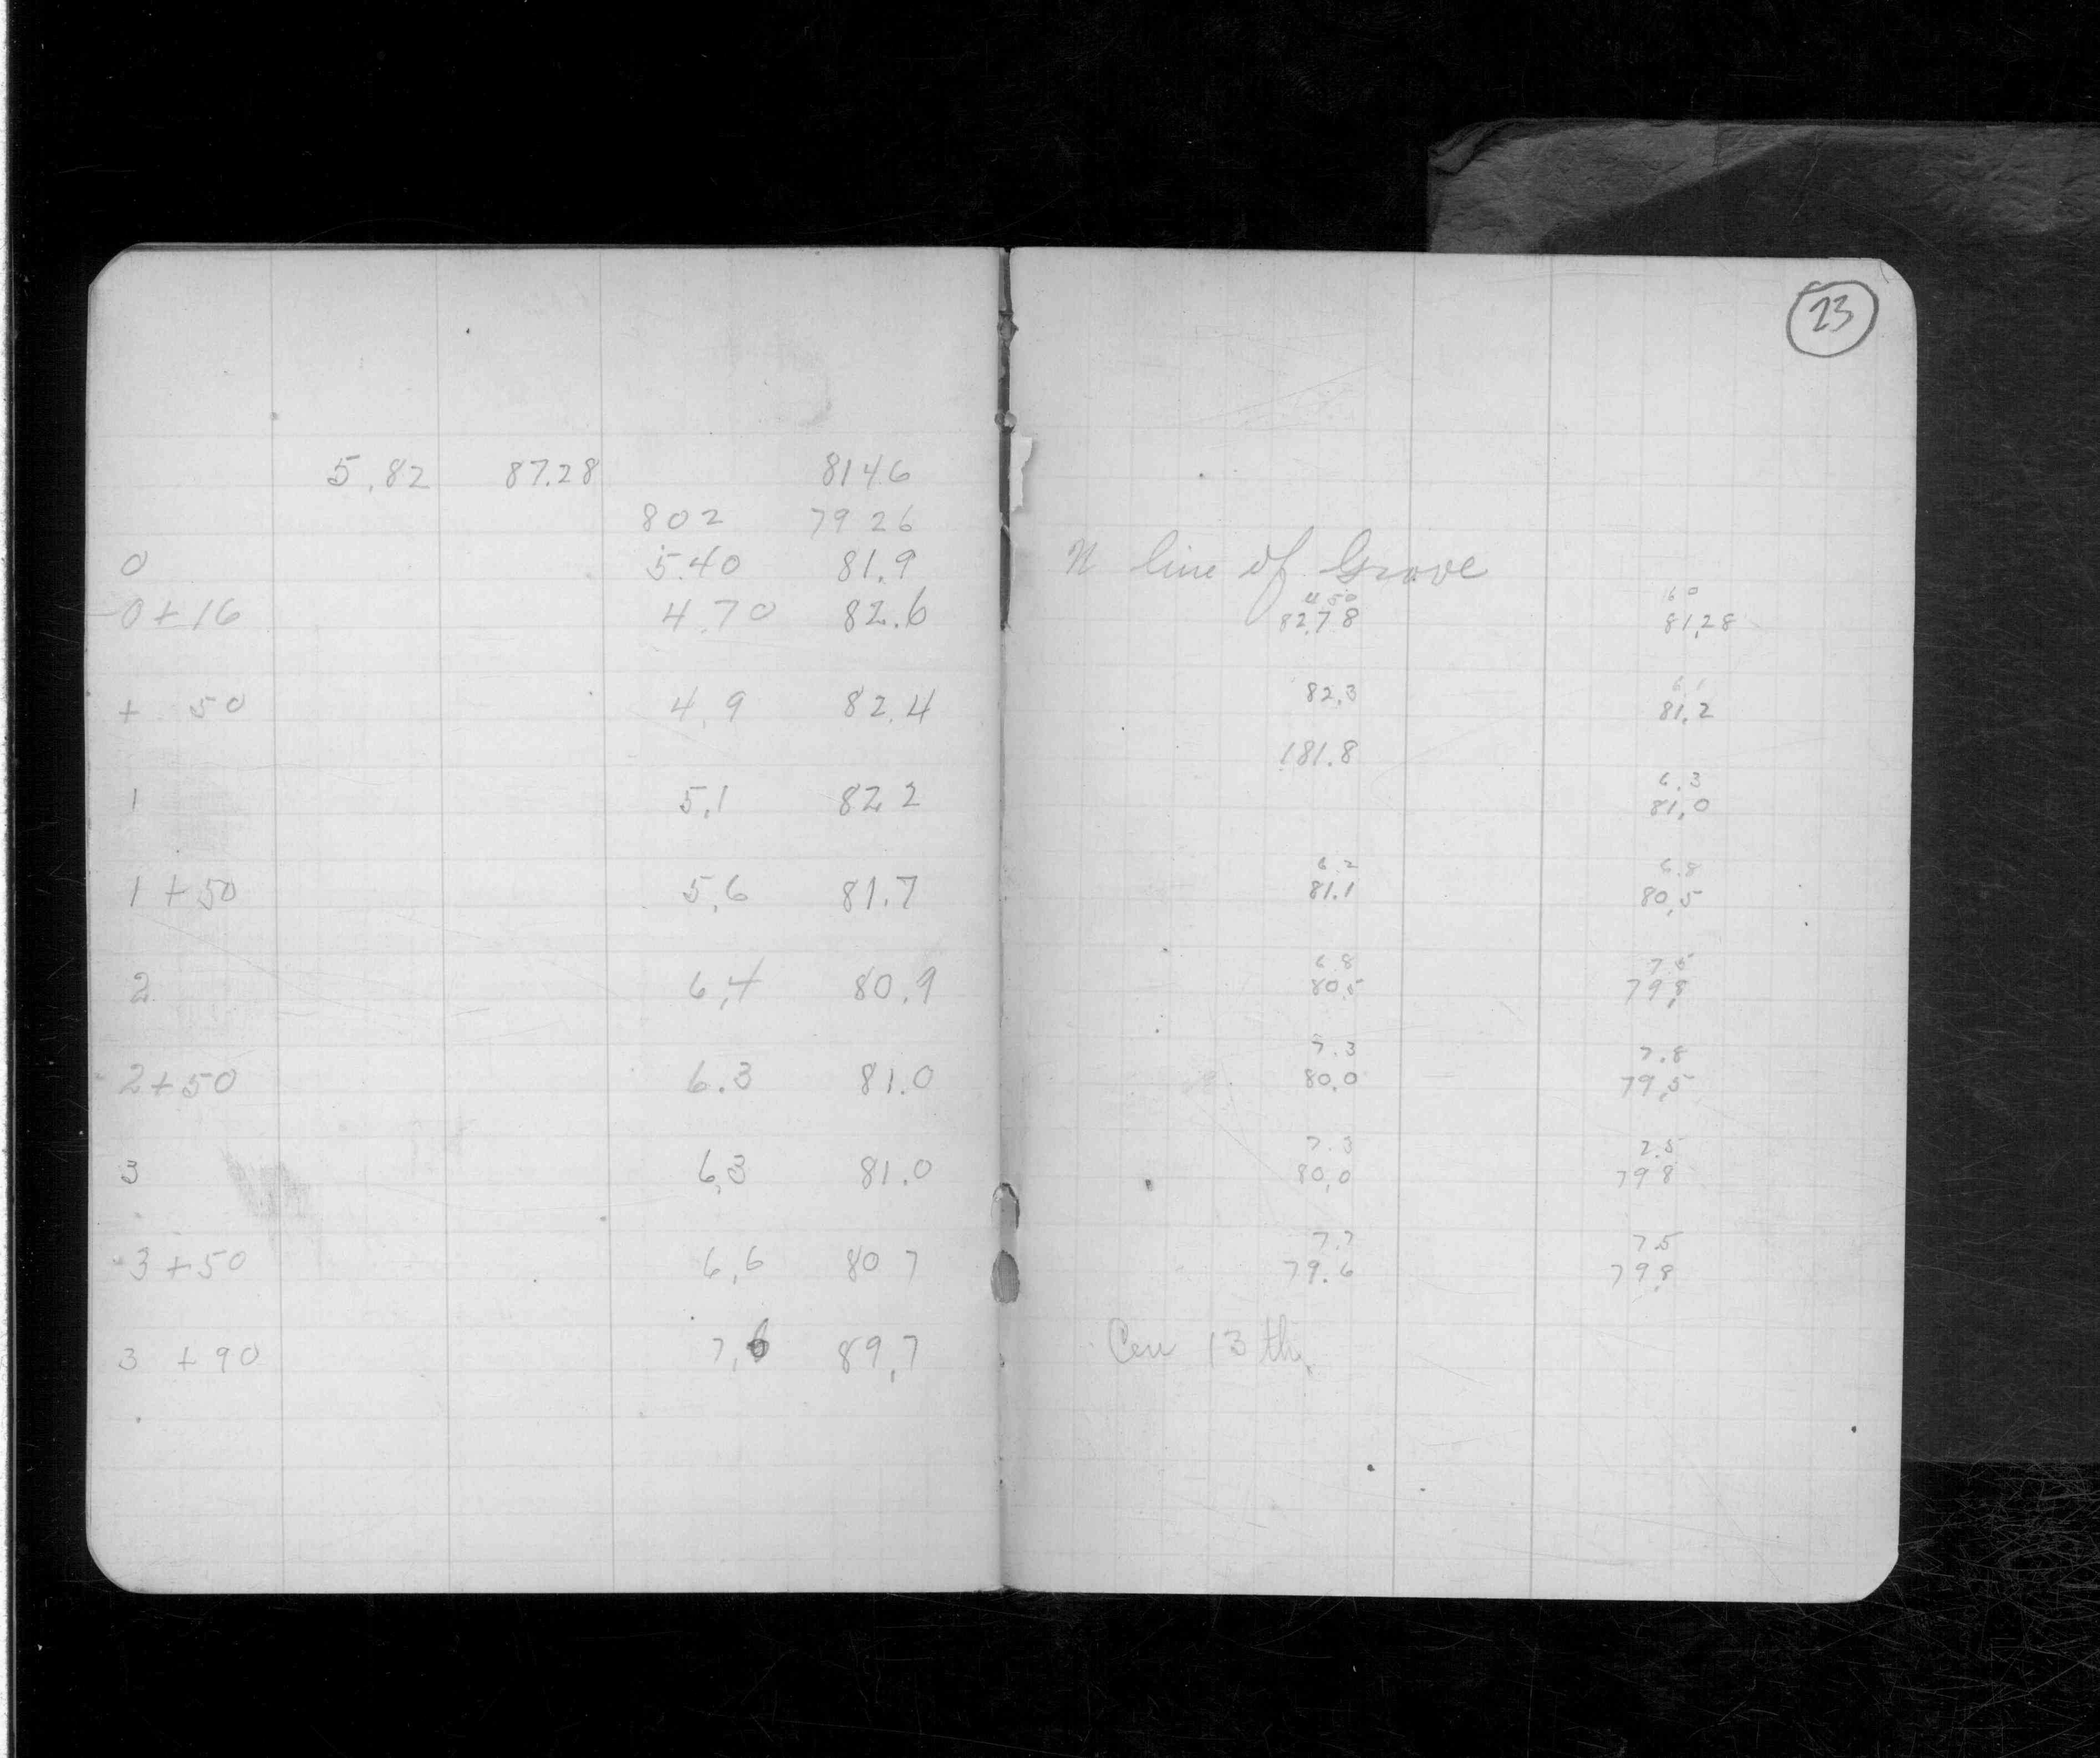 23
5.82 87.28 8146
802 79 26
0 5.40 81.9 N line of Grove
0+16 4.70 82.6 4 50 82.78 6 0 81,28
+ 50 4.9 82.4 82,3 6.1 81.2
181.8
1 5,1 82 2 6.3 81,0
1 + 50 5,6 81.7 6 2 81.1 6.8 80,5
2 6,4 80.9 6 8 80.5 7.5 79,8
2+50 6.3 81.0 7.3 80.0 7.8 79,5
3 6,3 81.0 7.3 80,0 7.5 79 8
3+50 6,6 80 7 7.7 79.6 7.5 79.8
3 +90 7,6 89,7 Cen 13 th